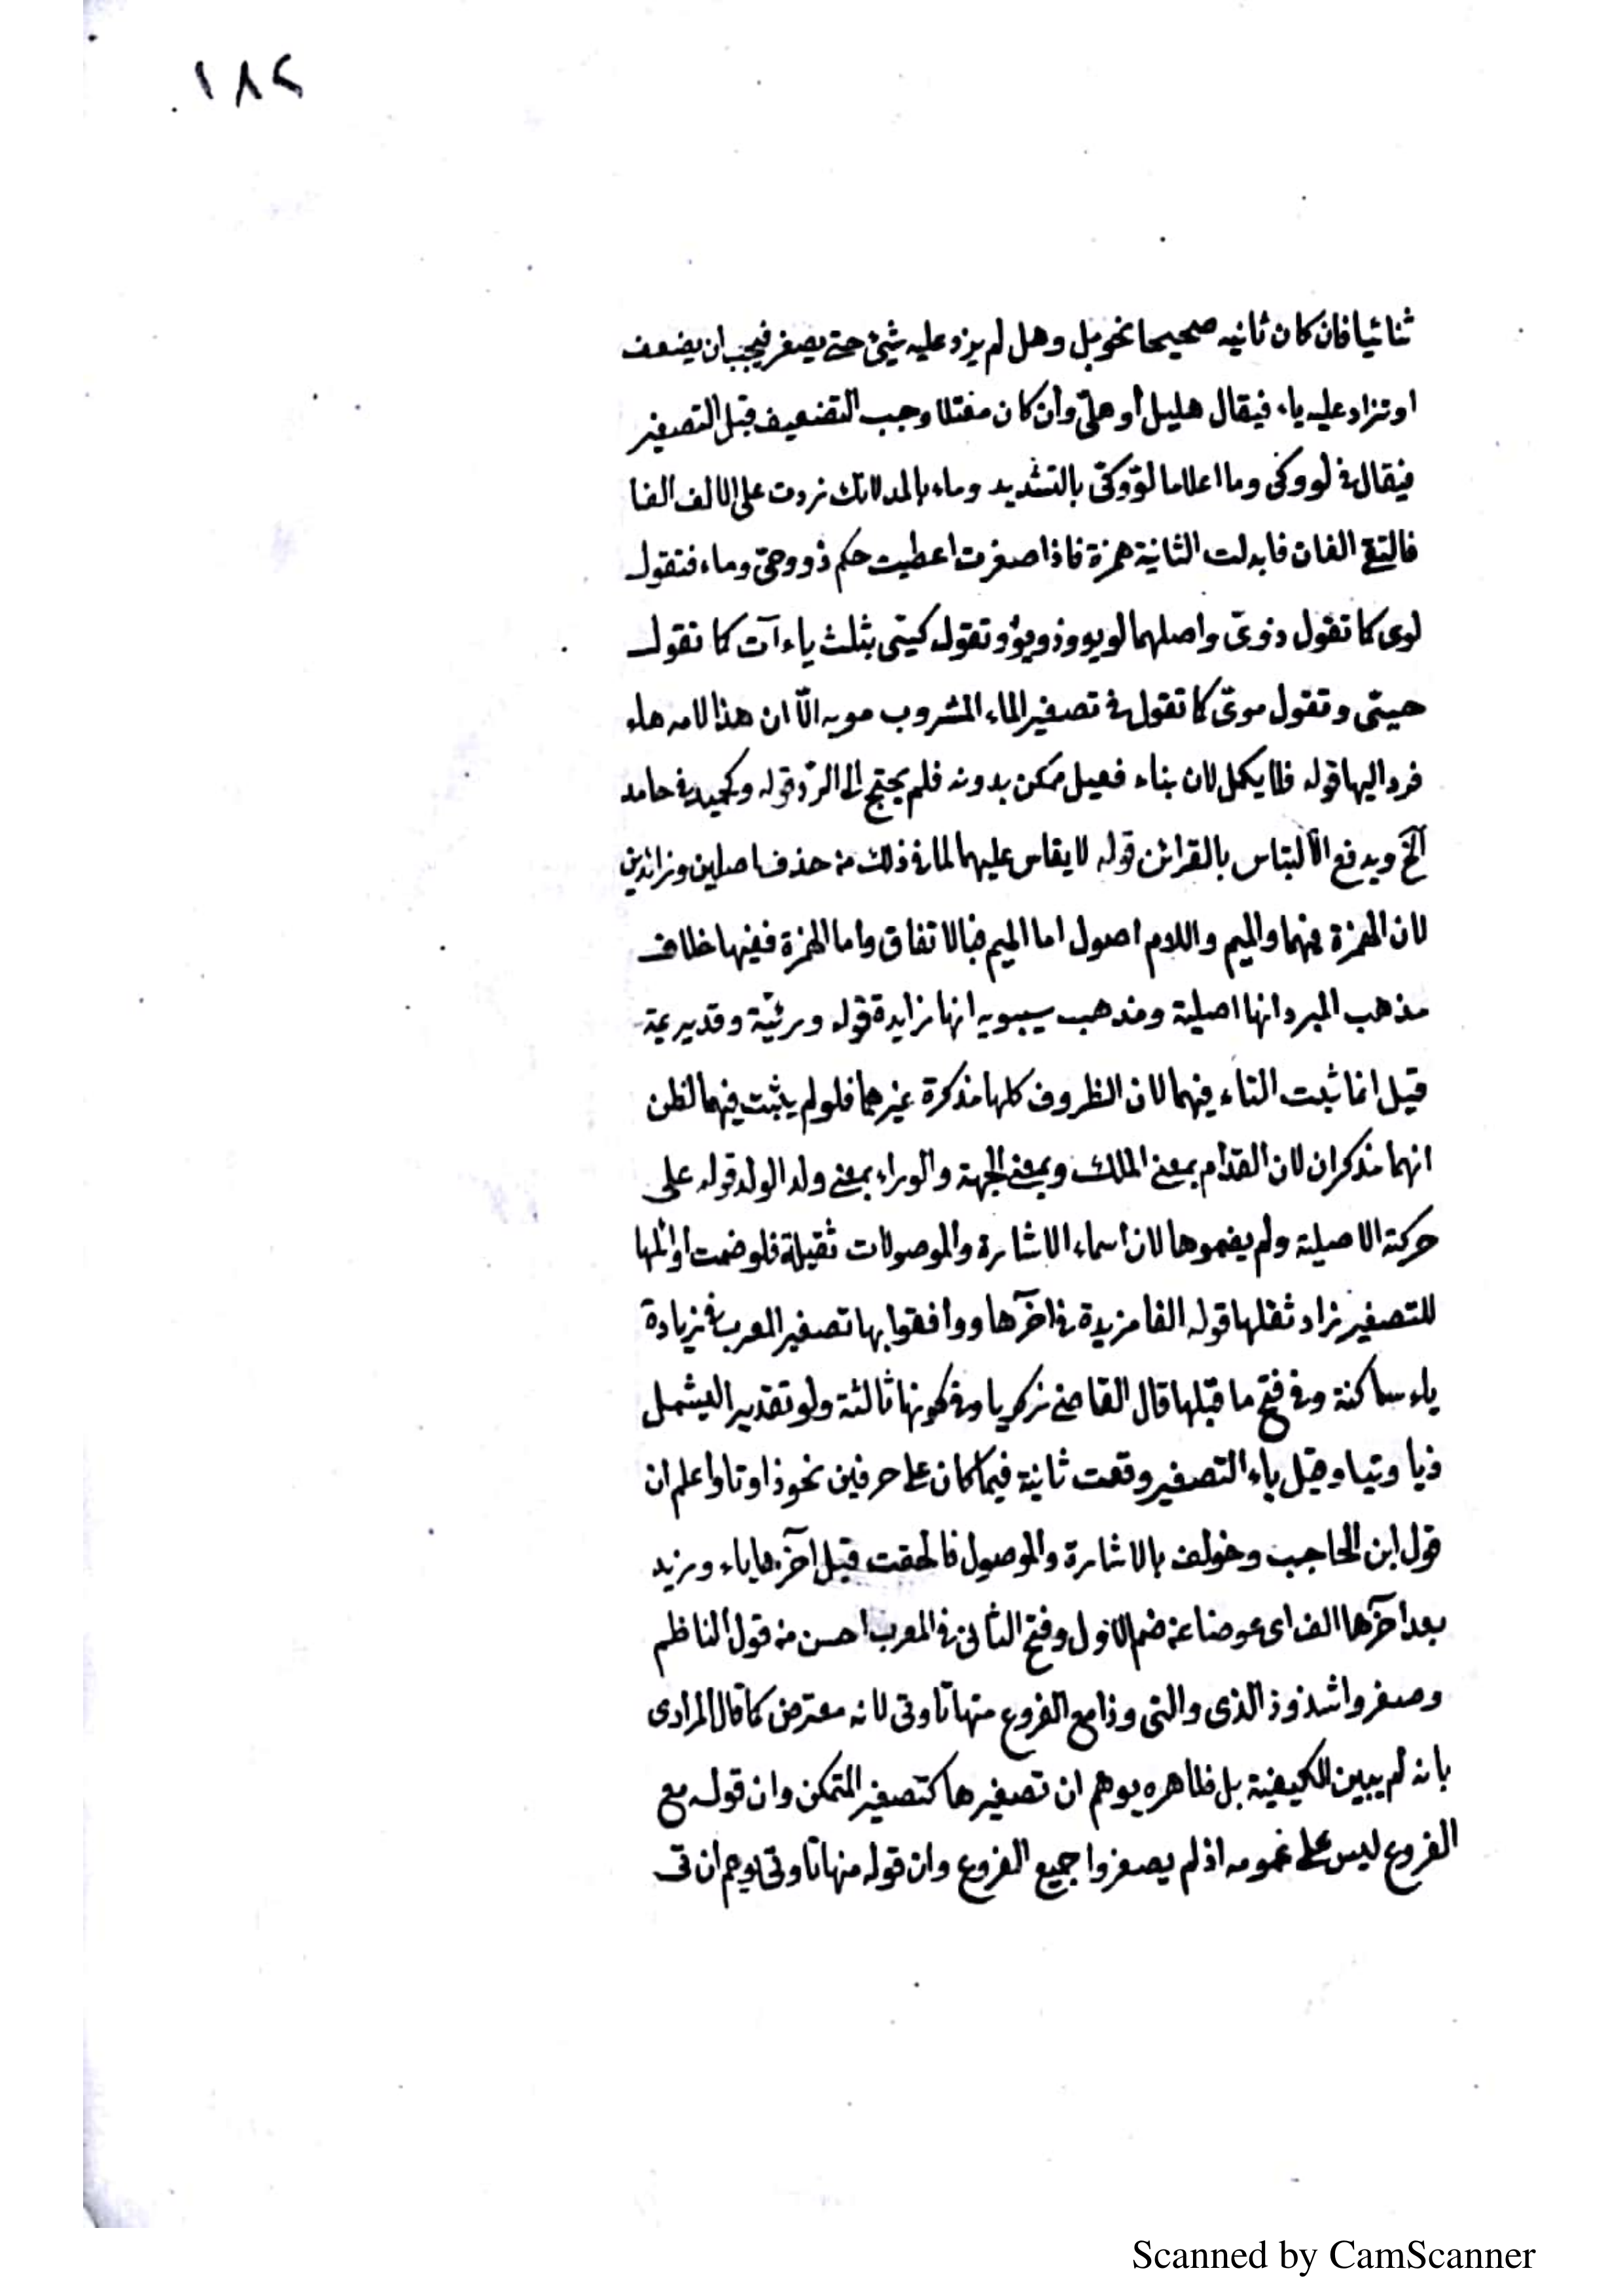 ١٨٢
ثنائيا فان كان ثانيه صحيحا نحو بل وهل لم يزد عليه شيئ حتى يصغر فيجب ان يضعف
او تزاد عليه ياء فيقال هليل أو هلىّ وأن كان معتلا وجب التضعيف قبل التصغير
فيقال فى لو وكى وما اعلاما لوّ وكىّ بالتشديد وماء بالمد لانك زدت على الالف الفا
فالتقى الفان فابدلت الثانية همزة فاذا صغرت اعطيت حكم دوّ وحىّ وماء فتقول
لوى كما تقول دوىّ واصلهما لويو ودويو وتقول كيىّ بثلث ياءآت كما تقول
حيىّ وتقول موىّ كما تقول فى تصغير الماء المشروب مويه الّا ان هذا لامه هاء
فرد اليها قوله فلا يكمل لان بناء فعيل ممكن بدونه فلم يحتج الى الردّ قوله وكحميد فى حامد
آلخ ويدفع الألتباس بالقرائن قوله لا يقاس عليهما لما فى ذلك من حذف اصلين وزائدين
لان الهمزة فيهما والميم واللام اصول اما الميم فبالاتفاق واما الهمزة ففيها خلاف
مذهب المبرد انها اصلية ومذهب سيبويه انها زايدة قوله ورئيّة وقديديمة
قيل انما ثبت التاء فيهما لان الظروف كلها مذكرة غيرهما فلو لم يثبت فيهما لظن
انهما مذكران لان القدّام بمعنى الملك وبمعنى الجهة والوراء بمعنى ولد الولد قوله على
حركته الاصلية ولم يضموها لان اسماء الاشارة والموصولات ثقيلة فلو ضمت اوائلها
للتصغير زاد ثقلها قوله الفا مزيدة فى اخرها ووافقوا بها تصغير المعرب فى زيادة
ياء ساكنة وفى فتح ما قبلها قال القاضى زكريا وفى كونها ثالثة ولو تقديرا ليشمل
ذيا وتيا وقيل ياء التصغير وقعت ثانية فيما كان على حرفين نحو ذا وتا واعلم ان
قول ابن الحاجب وخولف بالاشارة والموصول فالحقت قبل اخرها ياء وزيد
بعد اخرها الف اى عوضا عن ضم الاول وفتح الثانى فى المعرب احسن من قول الناظم
وصغروا شذوذ الذى والتى وذا مع الفروع منها تا وتى لانه معترض كما قال المرادى
بانه لم يبين الكيفية بل ظاهره يوهم ان تصغيرها كتصغير المتمكن وان قوله مع
الفروع ليس على عمومه اذ لم يصغروا جميع الفروع وان قوله منها تا وتى يوهم ان تى
Scanned by CamScanner